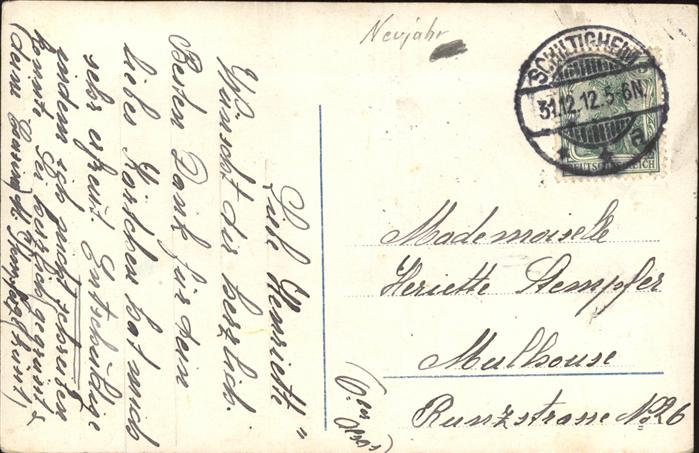 Neujahr
SCHILTIGHEIM
31.12.12.5-6N.
a
DEUTSCHES REICH
Mademoiselle
Heriette Stempfer
Mulhouse
Runzstrasse No 26
Lieb Henriette
Wünscht dir herzlich.
Besten Dank für dein
liebes Kärtchen hat mich
sehr erfreut Entschuldige
indem ich nicht schreiben
konnte Sei herzlich gegrüsst